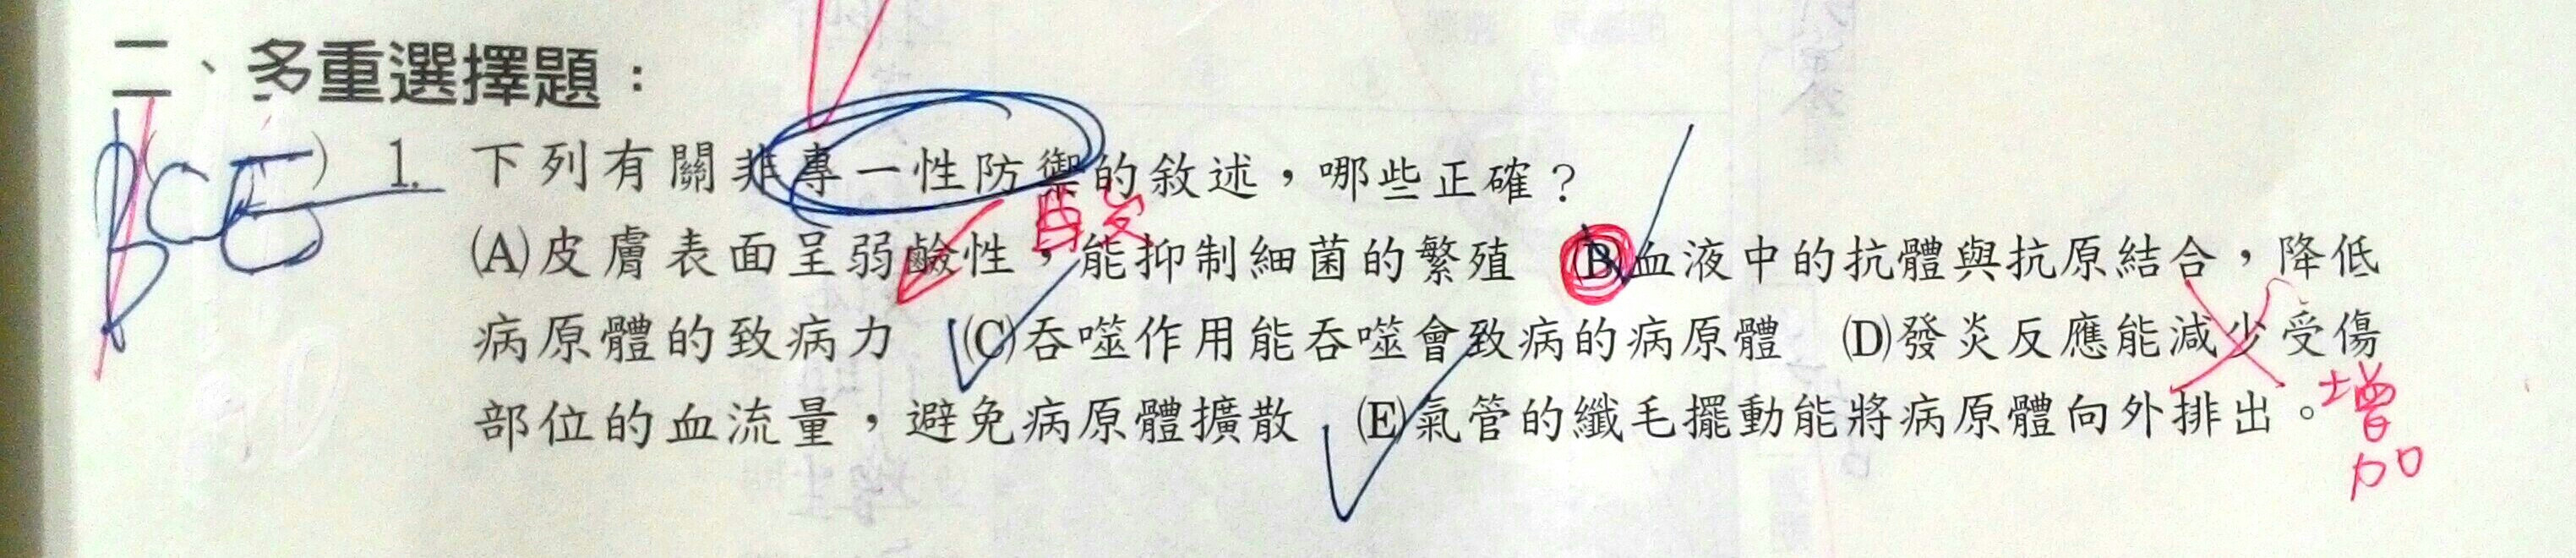 二、多重選擇題：
BCE) 1. 下列有關非專一性防禦的敘述，哪些正確？
酸
(A)皮膚表面呈弱鹼性，能抑制細菌的繁殖 (B)血液中的抗體與抗原結合，降低
病原體的致病力 (C)吞噬作用能吞噬會致病的病原體 (D)發炎反應能減少受傷
增加
部位的血流量，避免病原體擴散 (E)氣管的纖毛擺動能將病原體向外排出。